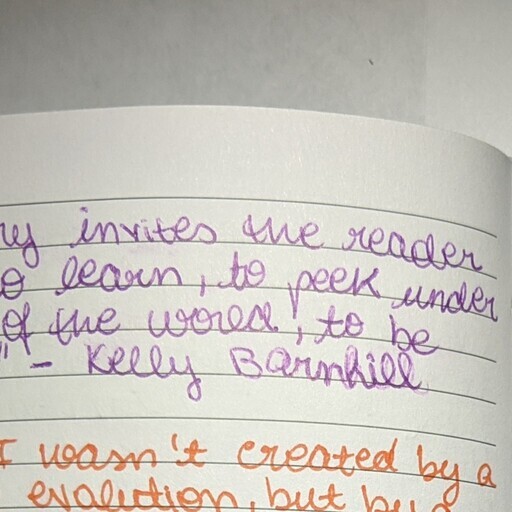 ry invites the reader
o learn, to peek under
of the world, to be
" - Kelly Barnhill
I wasn't created by a
evolution, but by a